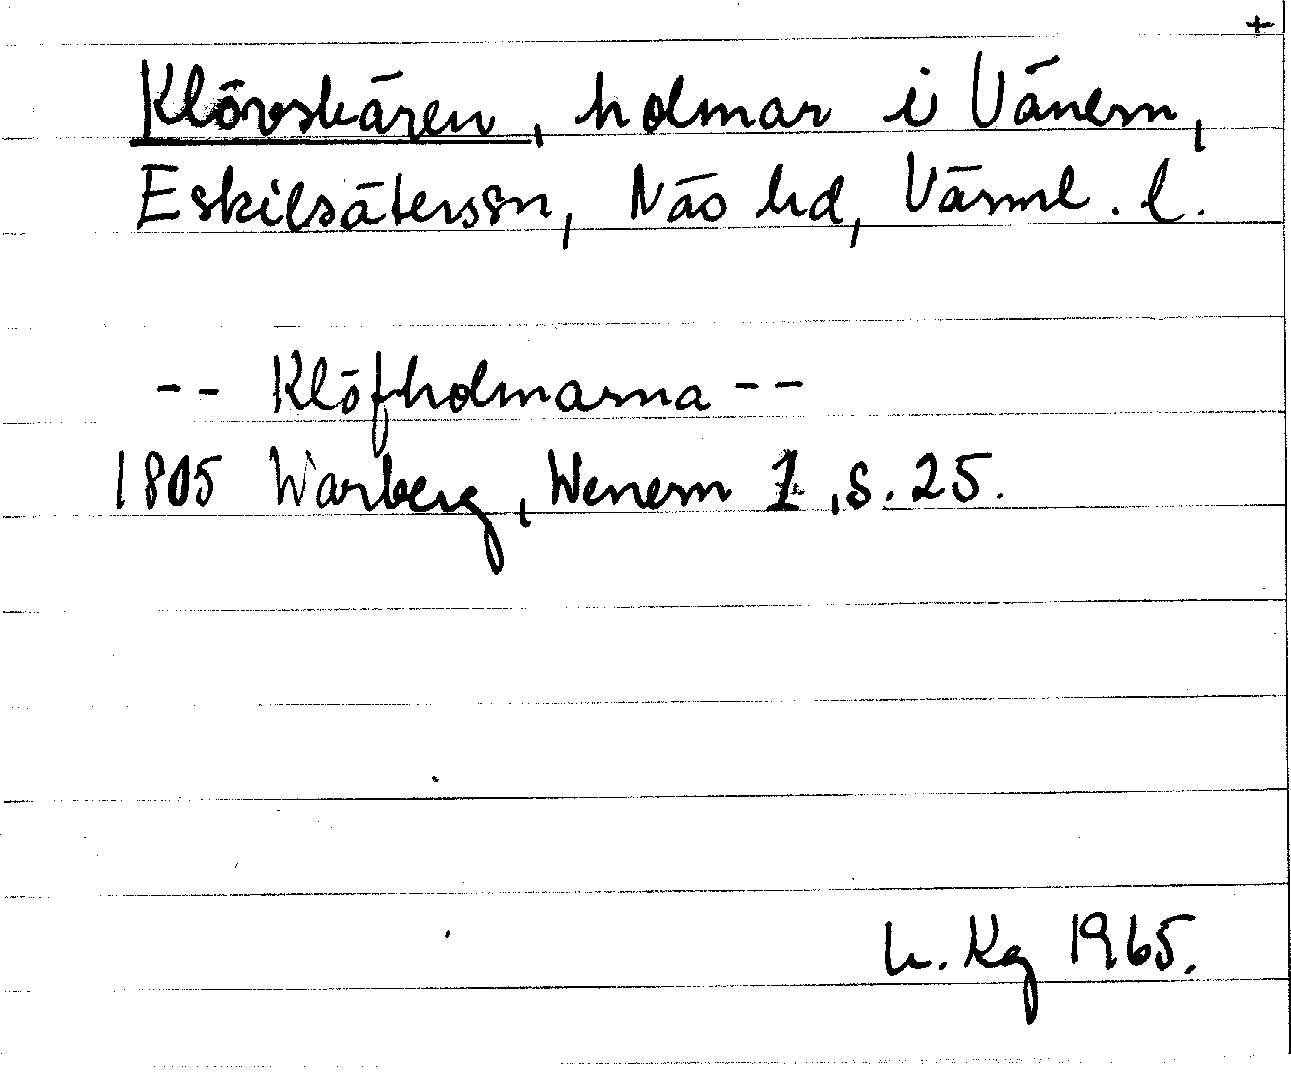 +
Klövskären, holmar i Vänern,
Eskilsäterssn, Näs hd, Värml. l.
-- Klöfholmarna --
1805 Warberg, Wenern 1, s. 25.
h. Kg 1965.